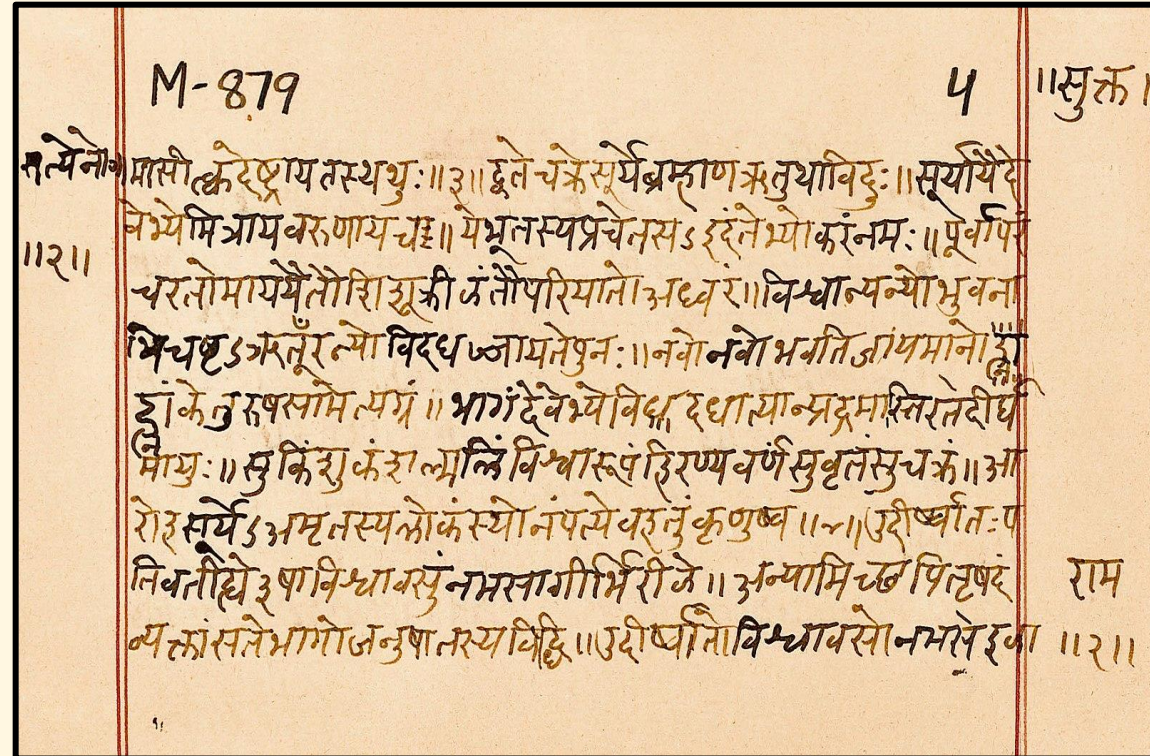 M-879 4 ॥सुक्त।
मासीत्क्वदेष्ट्रायतस्थथुः॥३॥द्वेतेचक्रेसूर्येब्रम्हाणऋतुथाविदुः॥सूर्यायैदे
वेभ्येमित्रायवरुणायच॥येभूतस्यप्रचेतसऽइदंतेभ्योकरंनमः॥पूर्वापरं
॥२॥
चरतोमाययैतौशिशूक्रीळंतौपरियातोअध्वरं॥विश्वान्यन्योभुवना
भिचष्टऽऋतूँरन्योविदधज्जायतेपुनः॥नवोनवोभवतिजायमानो
ह्नांकेतुरुषसामेत्यग्रं॥भागंदेवेभ्योविदधात्यान्प्रद्रमास्तिरतेदीर्घ
मायुः॥सुकिंशुकंशल्मलिंविश्वारूपंहिरण्यवर्णंसुवृतंसुचक्रं॥आ
रोहसूर्येऽअमृतस्यलोकंस्योनंपत्येवहतुंकृणुष्व॥४॥उदीर्ष्वातःप
तिवतीह्ये३षाविश्वावसुंनमसागीर्भिरीळे॥अन्यामिच्छपितृषदं राम
व्यक्तांसतेभागोजनुषातस्यविद्धि॥उदीर्ष्वातोविश्वावसोनमसेळा ॥२॥